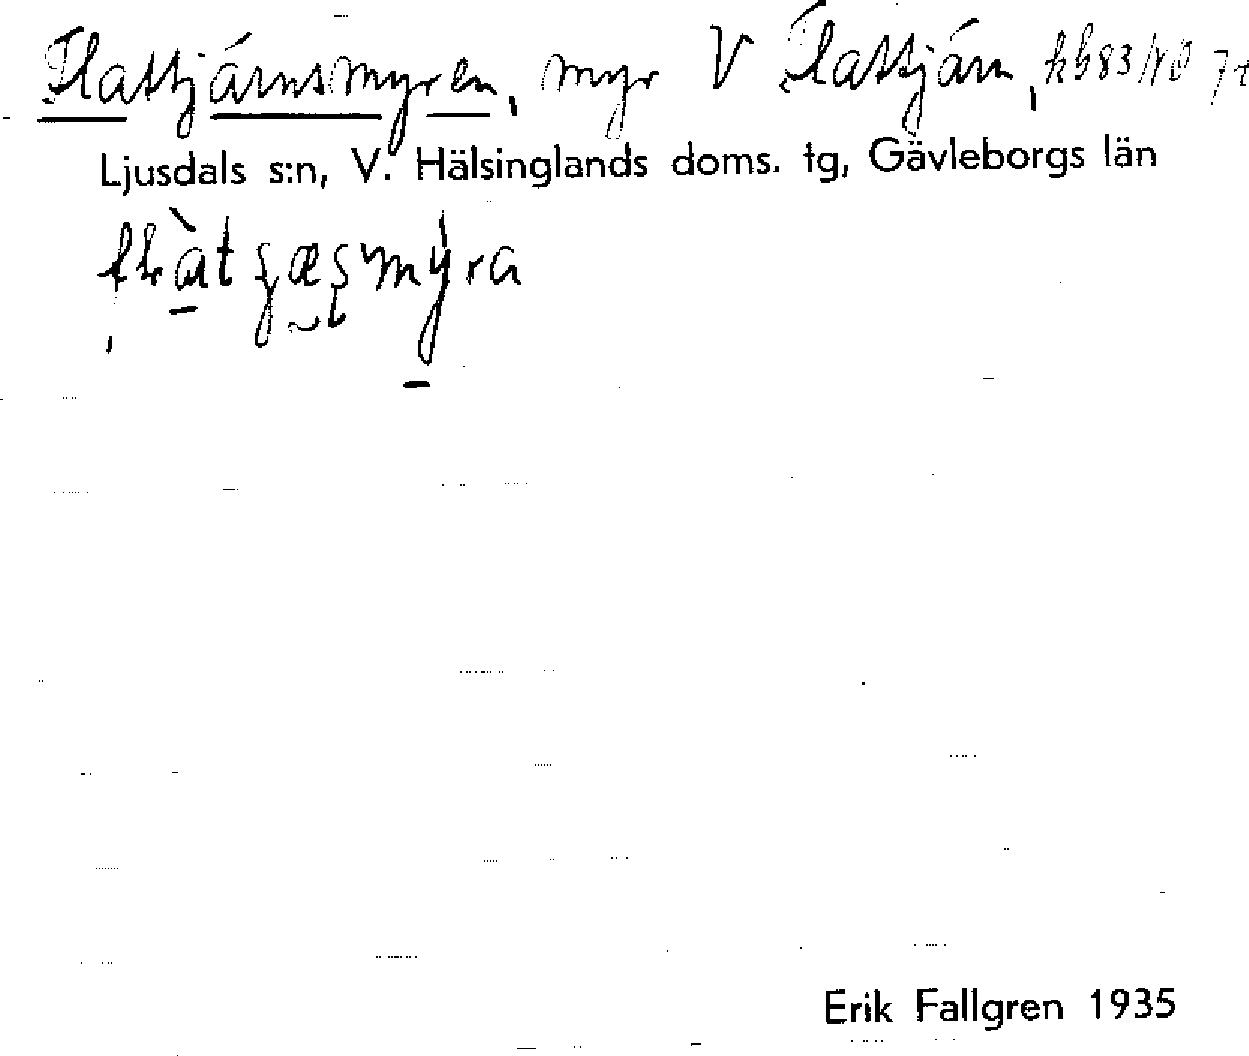 Flattjärnsmyren, myr V Flattjärn,
Ljusdals s:n, V. Hälsinglands doms. tg, Gävleborgs län
Erik Fallgren 1935